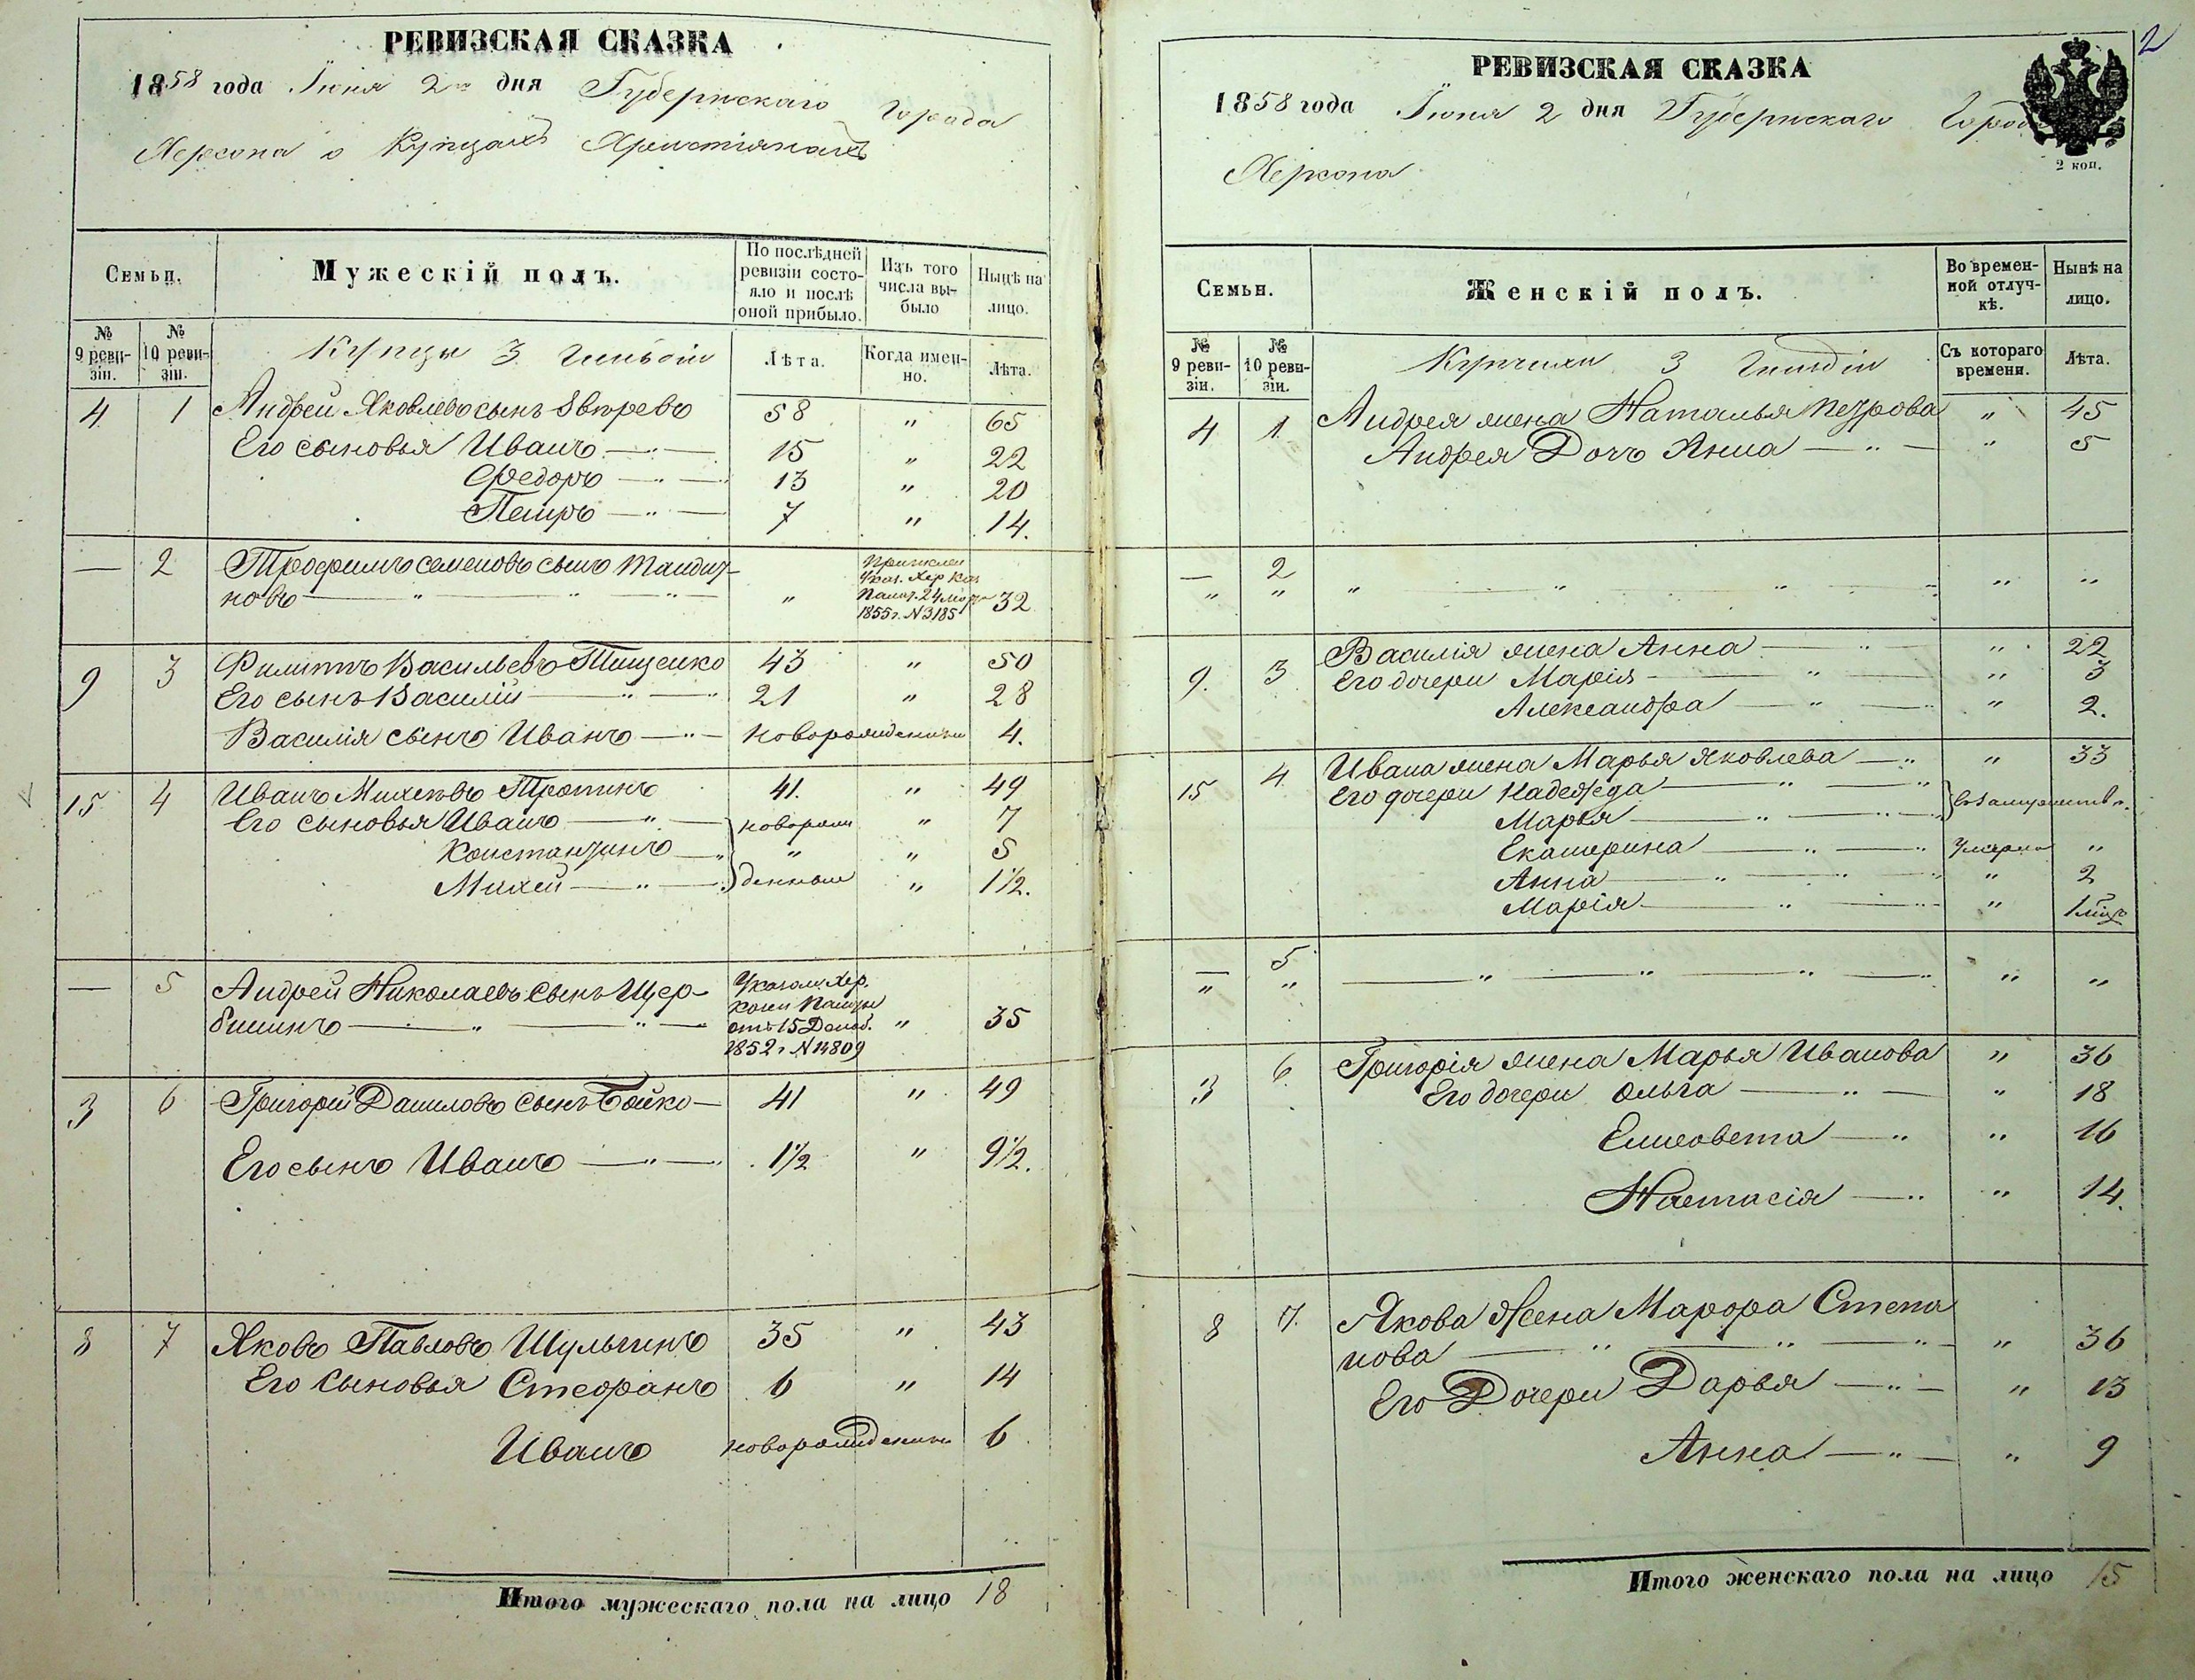 РЕВИЗСКАЯ СКАЗКА
1858 года Июня 2го дня Губернскаго Города
Херсона о Купцахъ Христіянахъ
Семьи.
Мужескій полъ.
По послѣдней ревизіи состояло и послѣ оной прибыло.
Изъ того числа выбыло
Нынѣ на лицо.
№ 9 ревизіи.
№ 10 ревизіи.
Купцы 3 Гильдіи
Лѣта.
Когда именно.
Лѣта.
4 1 Андрей Яковлевъ сынъ 58 " 65
Его сыновья Иванъ — " — 15 " 22
Федоръ — " — 13 " 20
Петръ — " — 7 " 14.
— 2 Трофимъ Семеновъ сынъ
новъ — " — " — " 32
1855 г. №3185
9 3 Филиппъ Васильевъ Тищенко 43 " 50
Его сынъ Василій — " — 21 " 28
Василія сынъ Иванъ — " — новорожденный 4.
15 4 Иванъ Михеевъ Тропинъ 41. " 49
Его сыновья Иванъ — " — новорож " 7
Константинъ — " " " 5
Михей — " — денные " 1½.
— 5 Андрей Николаевъ сынъ Щер- Указом Хер.
бининъ — " — " — Казен Палаты
отъ 15 Декаб. " 35
1852 г №14809
3 6 Григорій Даниловъ сынъ Бойко — 41 " 49
Его сынъ Иванъ — " — 1½ " 9½.
8 7 Яковъ Павловъ Шульгинъ 35 " 43
Его Сыновья Стефанъ 6 " 14
Иванъ новорожденный 6
Итого мужескаго пола на лицо 18
2
РЕВИЗСКАЯ СКАЗКА
1858 года Июня 2 дня Губернскаго Города
Херсона
2 коп.
Семьи.
Женскій полъ.
Во временной отлучкѣ.
Нынѣ на лицо.
№ 9 ревизіи.
№ 10 ревизіи.
Купчихи 3 Гильдіи
Съ котораго времени.
Лѣта.
4 1. Андрея жена Наталья Петрова " 45
Андрея Дочъ Анна — " — " 5
— 2
" " " " " " " "
9. 3 Василія жена Анна — " — " 22
Его дочери Марія — " — " 3
Александра — " — " 2.
15 4. Ивана жена Марья Яковлева — " " 33
Его дочери Надежда — " — "
Марья — " — " Въ замужествѣ.
Екатерина — " — " Умерла "
Анна — " — " — " " 2
Марія — " — " " 1 мѣц
— 5
" " — " — " — " — " "
3 6. Григорія жена Марья Иванова " 36
Его дочери Ольга — " — " 18
Елисовета — " " 16
Настасія — " " 14.
8 7. Якова Жена Марфа Степа
нова — " — " — " — " 36
Его Дочери Дарья — " — " 13
Анна — " — " 9
Итого женскаго пола на лицо 15